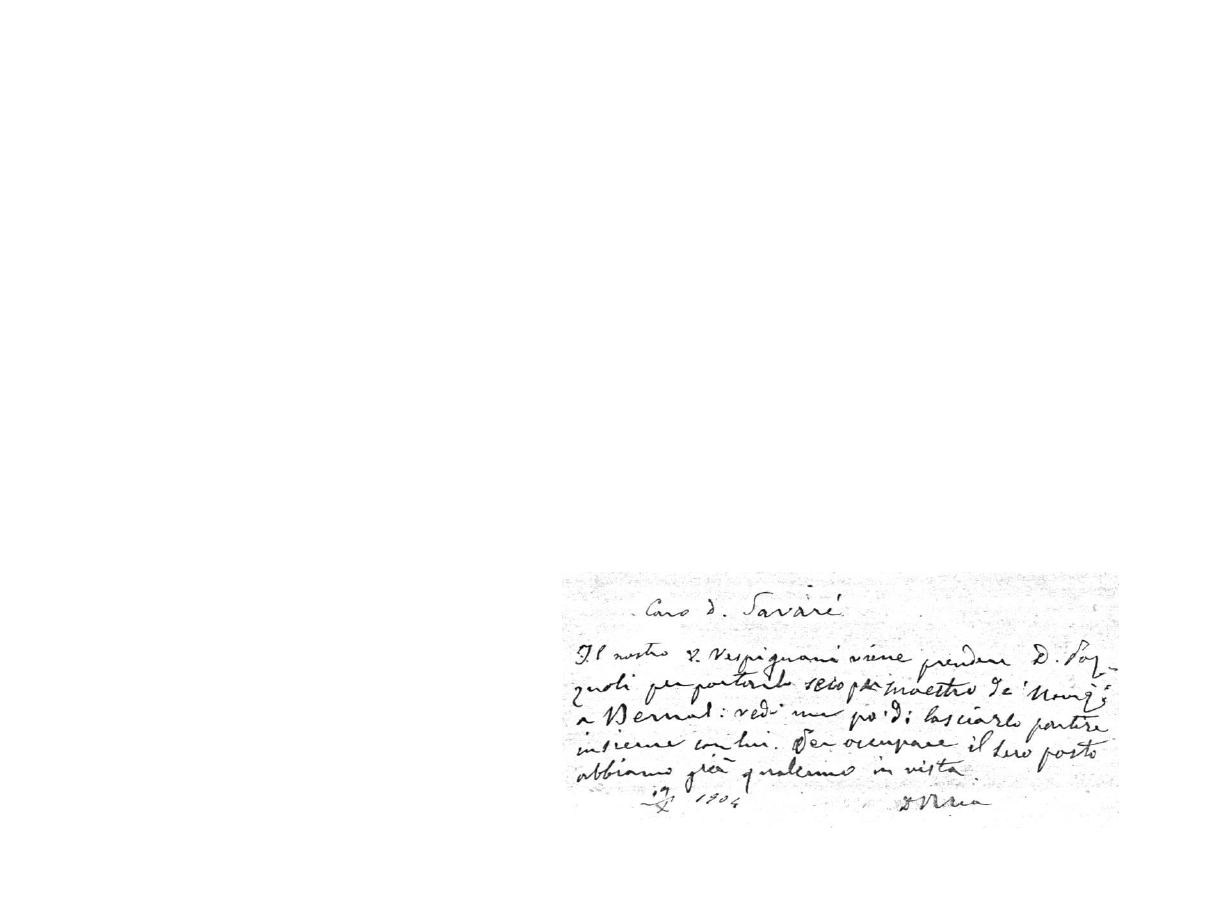 Caro D. Savaré
Il nostro D. Vespignani viene prendere D. Paz-
zuoli per portarlo seco per maestro de'
a Bernal: vedi un po' di lasciarlo partire
insieme con lui. Per occupare il suo posto
abbiamo già qualcuno in vista
19/X 1904